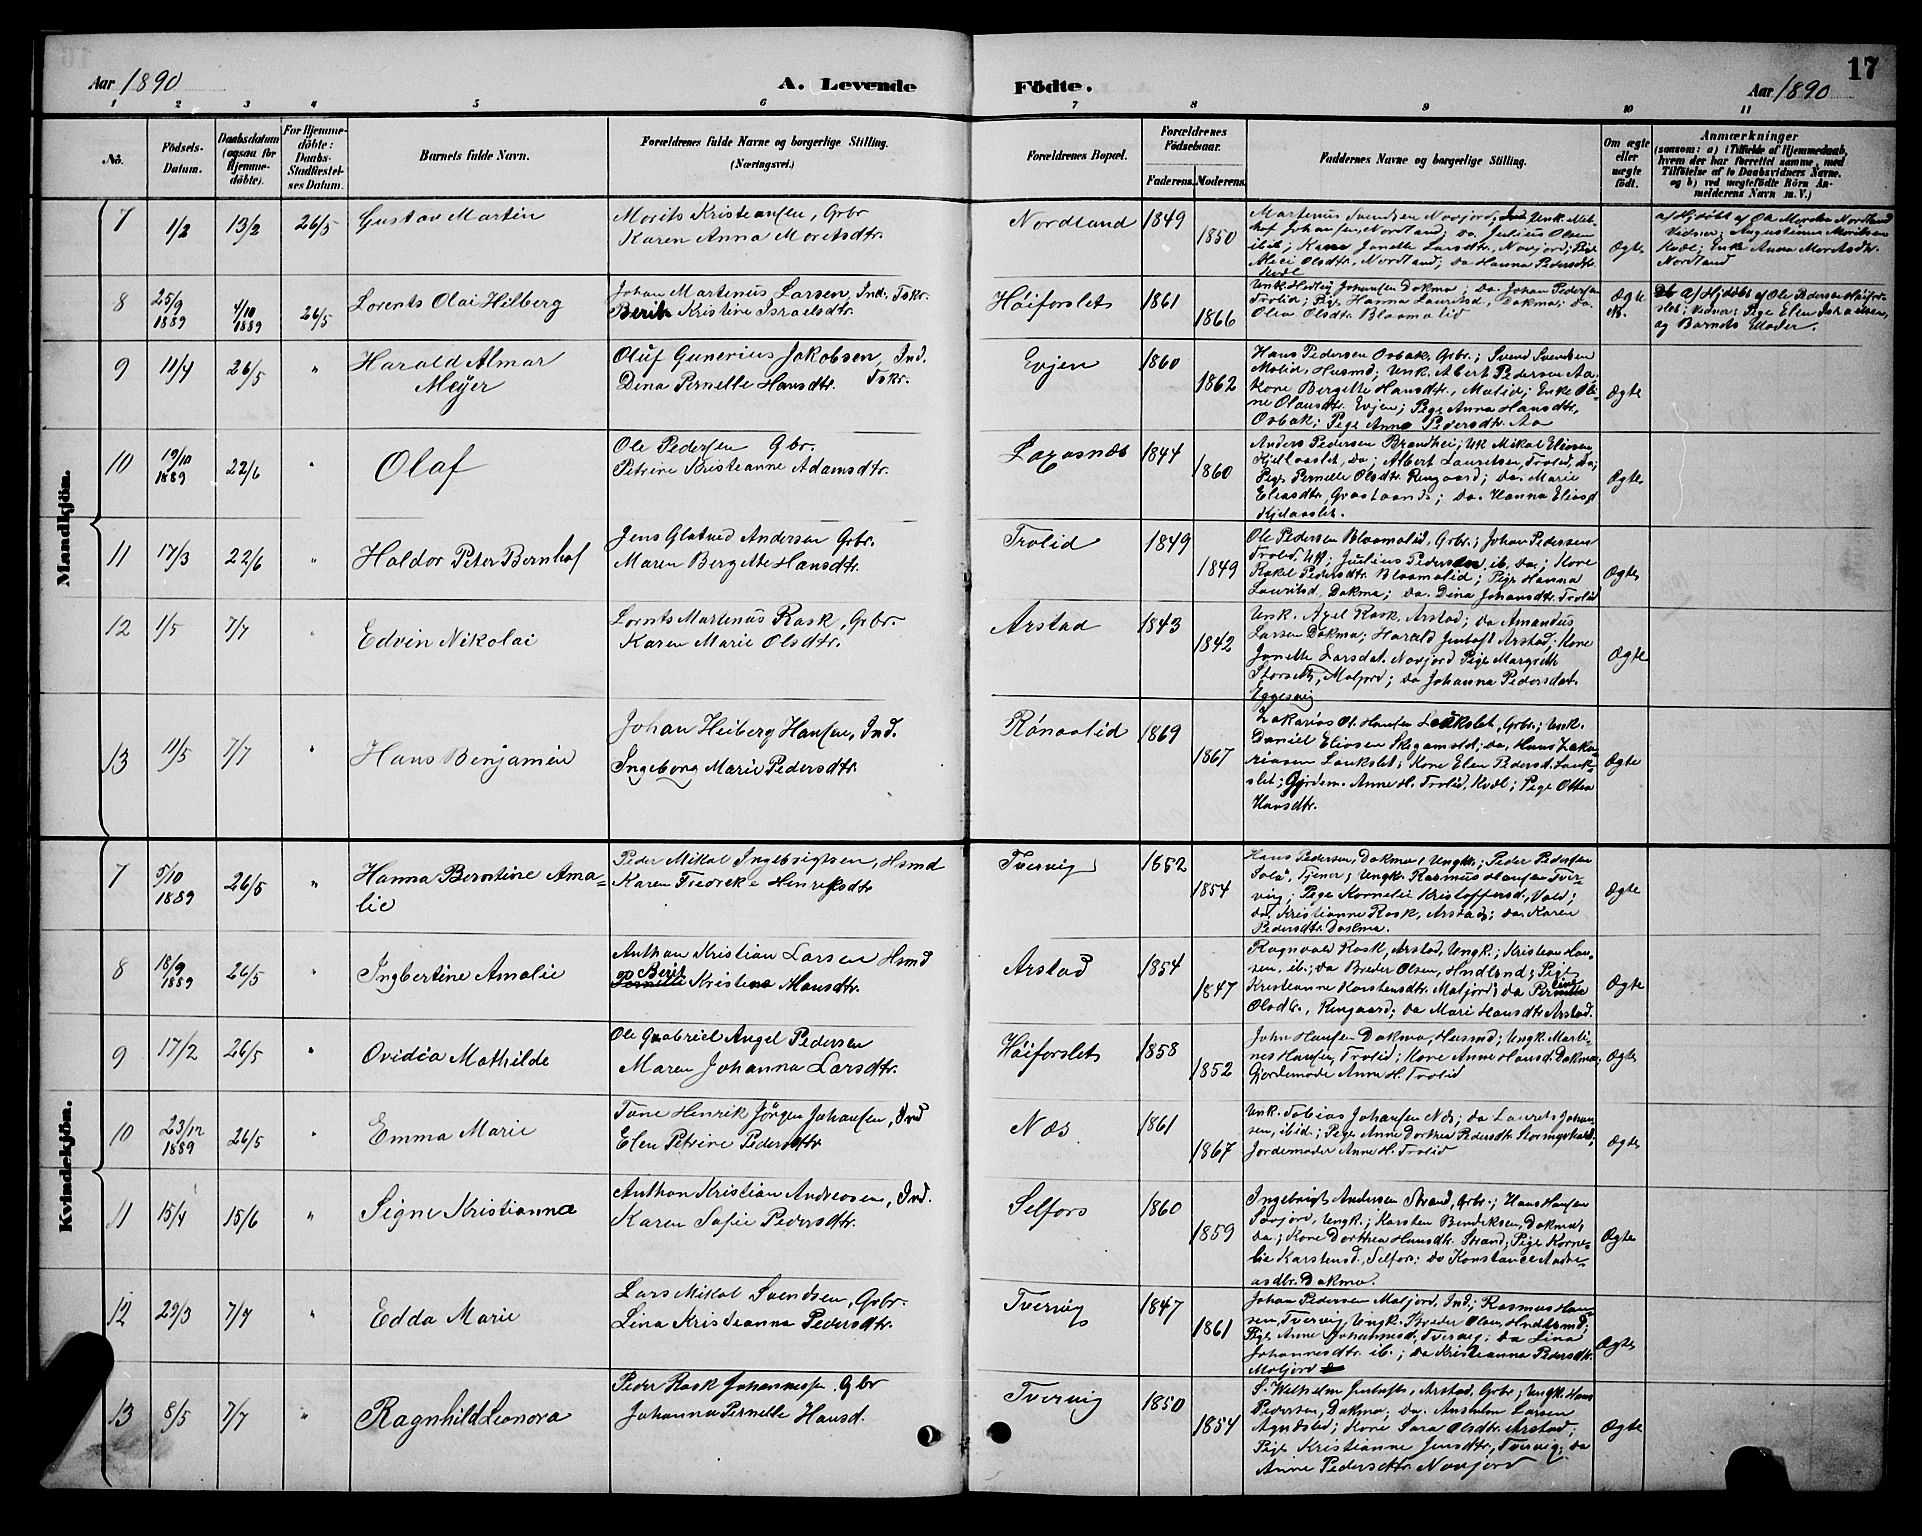 Aar 1890
A. Levende
Fødte.
Aar 1890
17
1 2 3 4 5 6 7 8 9 10 11
No.
Födsels-
Datum.
Daabsdatum
(ogsaa for
Hjemme-
döbte).
For Hjemme-
döbte:
Daabs-
Stadfæstel-
ses Datum.
Barnets fulde Navn.
Forældrenes fulde Navne og borgerlige Stilling.
(Næringsvei.)
Forældrenes Bopæl.
Forældrenes
Födselsaar.
Faderens.
Moderens.
Faddernes Navne og borgerlige Stilling.
Om ægte
eller
uægte
födt.
Anmærkninger
(saasom: a) i Tilfælde af Hjemmedaab,
hvem der har forrettet samme, med
Tilföielse af to Daabsvidners Navne.
og b) ved uægtefödte Börn An-
melderens Navn m. V.)
Mandkjön.
7 1/2 13/2 26/5 Gustav Martin
Morits Kristiansen, Grbr
Karen Anna Moritsdtr.
Nordland 1849 1850
Martinus Svendsen Novjord; Unk. Met-
hof Johansen, Nordland; do Julius Olsen
ibid; Kone Janette Larsdtr, Novjord; Pige
Alice Olsdtr. Nordland; do Hanna Pedersdtr.
Kvæl
Ægte
af Hjdøbt af Ole Mortsen Nordland
Vidner; Augustinus Moritsen
Kvæl; Enke Anna Moritsdtr.
Nordland
8 25/9 1889 4/10 1889 26/5 Lorents Olai Hilberg
Johan Martinus Larsen, Ind. Fskr.
Berit Kristine Israelsdtr.
Høiforslet 1861 1866
Unk Hedley Johansen Dokmo; do Johan Pedersen
Trolid; Pige Hanna Lauritsd, Dokmo; do
Olea Olsdtr Bloamolid
Ægte
Hjdøbt af Ole Pedersen Høifor-
slet; Vidner; Pige Elen Israelsen,
og Barnets Moder.
9 11/4 26/5 " Harald Almar
Meyer
Oluf Gunerius Jakobsen, Ind.
Dina Pernelle Hansdtr. Fskr.
Evjen 1860 1862
Hans Pedersen Osbak, Grbr.; Svend Svendsen
Molid, Husmd; Unk. Albert Pedersen Aa.
Kone Bergette Hansdtr., Molid; Enke Oli-
ne Olausdtr. Evjen; Pige Anna Hansdtr,
Osbak; Pige Anna Pedersdtr. Aa
Ægte
10 19/10 1889 22/6 " Olaf
Ole Pedersen Gbr.
Petrine Kristianne Adamsdtr.
Laxosnæs 1844 1860
Anders Pedersen Brandhei; Uk Mikal Eliasen
Kjellaaslet, do; Albert Lauritsen, Trolid, do;
Pige Pernelle Olsdtr Rengaard; do. Marie
Eliasdtr, Graataand; do. Hanna Eliasd
Kjelaaslet.
Ægte
11 17/3 22/6 " Haldor Peter Bernhof
Jens Glatved Andersen Grbr.
Maren Bergette Hansdtr.
Trolid 1849 1849
Ole Pedersen Bloamolid, Grbr.; Johan Pedersen
Trolid, Uk; Julius Pedersen ib. do.; Kone
Rakel Pedersdtr Bloamolid; Pige Hanna
Lauritsd, Dokmo; do. Dina Johansdtr. Trolid
Ægte
12 1/5 7/7 " Edvin Nikolai
Lornts Martinus Rask, Grbr.
Karen Marie Olsdtr.
Arstad 1843 1842
Unk. Axel Rask, Arstad; do Amandus
Larsen Dokmo; Harald Jentoft Arstad; Kone
Janette Larsdat. Novjord Pige Margreth
Storseth, Moljord; do Johanna Pedersdat.
Eggesvig
Ægte
13 11/5 7/7 " Hans Benjamin
Johan Heiberg Hansen, Ind.
Ingeborg Marie Pedersdtr.
Rönaalid 1869 1867
Zakarias Ol. Hansen Laukslet, Grbr.; Unk.
Daniel Eliasen Skogamold; do, Hans Zaka-
riasen Laukslet; Kone Elen Pedersd. Lauk-
slet; Gjordem. Anne H. Trolid, Kvæl; Pige Ottea
Hansdtr.
Ægte
Kvindekjön.
7 5/10 1889 26/5 " Hanna Berntine Ama-
lie
Peder Mikal Ingebrigtsen, Hsmd
Karen Fredrikke Henriksdtr
Tvervig 1852 1854
Hans Pedersen, Dokmo, Ungk; Peder Pedersen
Solø, Tjener; Ungk. Rasmus Hansen Tver-
vig; Pige Kornelie Kristoffersd, Vold;
do Kristianne Rask, Arstad; do. Karen
Pedersdtr. Dokmo.
Ægte
8 18/9 1889 26/5 " Ingbertine Amalie
Anthon Kristian Larsen Hsmd
Berit
Pernelle Kristine Hansdtr.
Arstad 1854 1847
Ragnvald Rask, Arstad, Ungk.; Kristian Han-
sen, ib.; do Breder Olsen, Hndland; Pige
Kristianne Karstensdtr. Moljord; do Perline
Olsdtr., Rengaard; do Mari Hansdtr Arstad.
Ægte
9 17/2 26/5 " Ovidia Mathilde
Ole Gabriel Angel Pedersen
Maren Johanna Larsdtr.
Høiforslet 1858 1852
John Hansen Dokmo, Husmd; Ungk Marti-
nes Hansen, Trolid; Kone Anne Hansd. Dokmo;
Gjordemode Anne H. Trolid
Ægte
10 23/12 1889 26/5 " Emma Marie
Tone Henrik Jörgen Johansen, Ind
Elen Petrine Pedersdtr
Næs 1861 1867
Unk. Tobias Johansen Næs; do Laurits Johan-
sen, ibid; Pige Anne Dorthea Pedersdtr
Jordemoder Anne H. Trolid
Ægte
11 15/4 15/6 " Signe Kristianna
Anthon Kristian Andreasen, Ind.
Karen Sofie Pedersdtr.
Selfors 1860 1859
Ingebrigt Andersen Strand, Grbr.; Hans Hansen
Soxjord, Ungk.; Karsten Bendiksen, Dokmo;
do; Kone Dorthea Hansdtr. Strand; Pige Korne-
lie Karstensd. Selfors; do Konstance Andre-
asdtr. Dokmo.
Ægte
12 29/3 7/7 " Edda Marie
Lars Mikal Svendsen, Grbr.
Lina Kristianna Pedersdtr.
Tvervig 1847 1861
Johan Pedersen Moljord, Ind; Rasmus Han-
sen, Tvervig Ungk. Breder Olsen, Hndland;
Pige Anne Johannesd, Tvervig; do Lina
Johannesdtr. ib.; do Kristianna Pedersdtr.
Moljord
Ægte
13 8/5 7/7 " Ragnhild Leonora
Peder Rask Johannessen, Gbr
Johanna Pernelle Hansd.
Tvervig 1850 1854
S. Wilhelm Jentoft, Arstad, Grbr; Ungk. Hans
Pedersen, Dokmo; do. Ansholm Larsen
Kone Sara Olsdtr. Arstad;
Pige Kristianne Jensdtr, Tvervig; do
Anne Pedersdtr. Novjord
Ægte